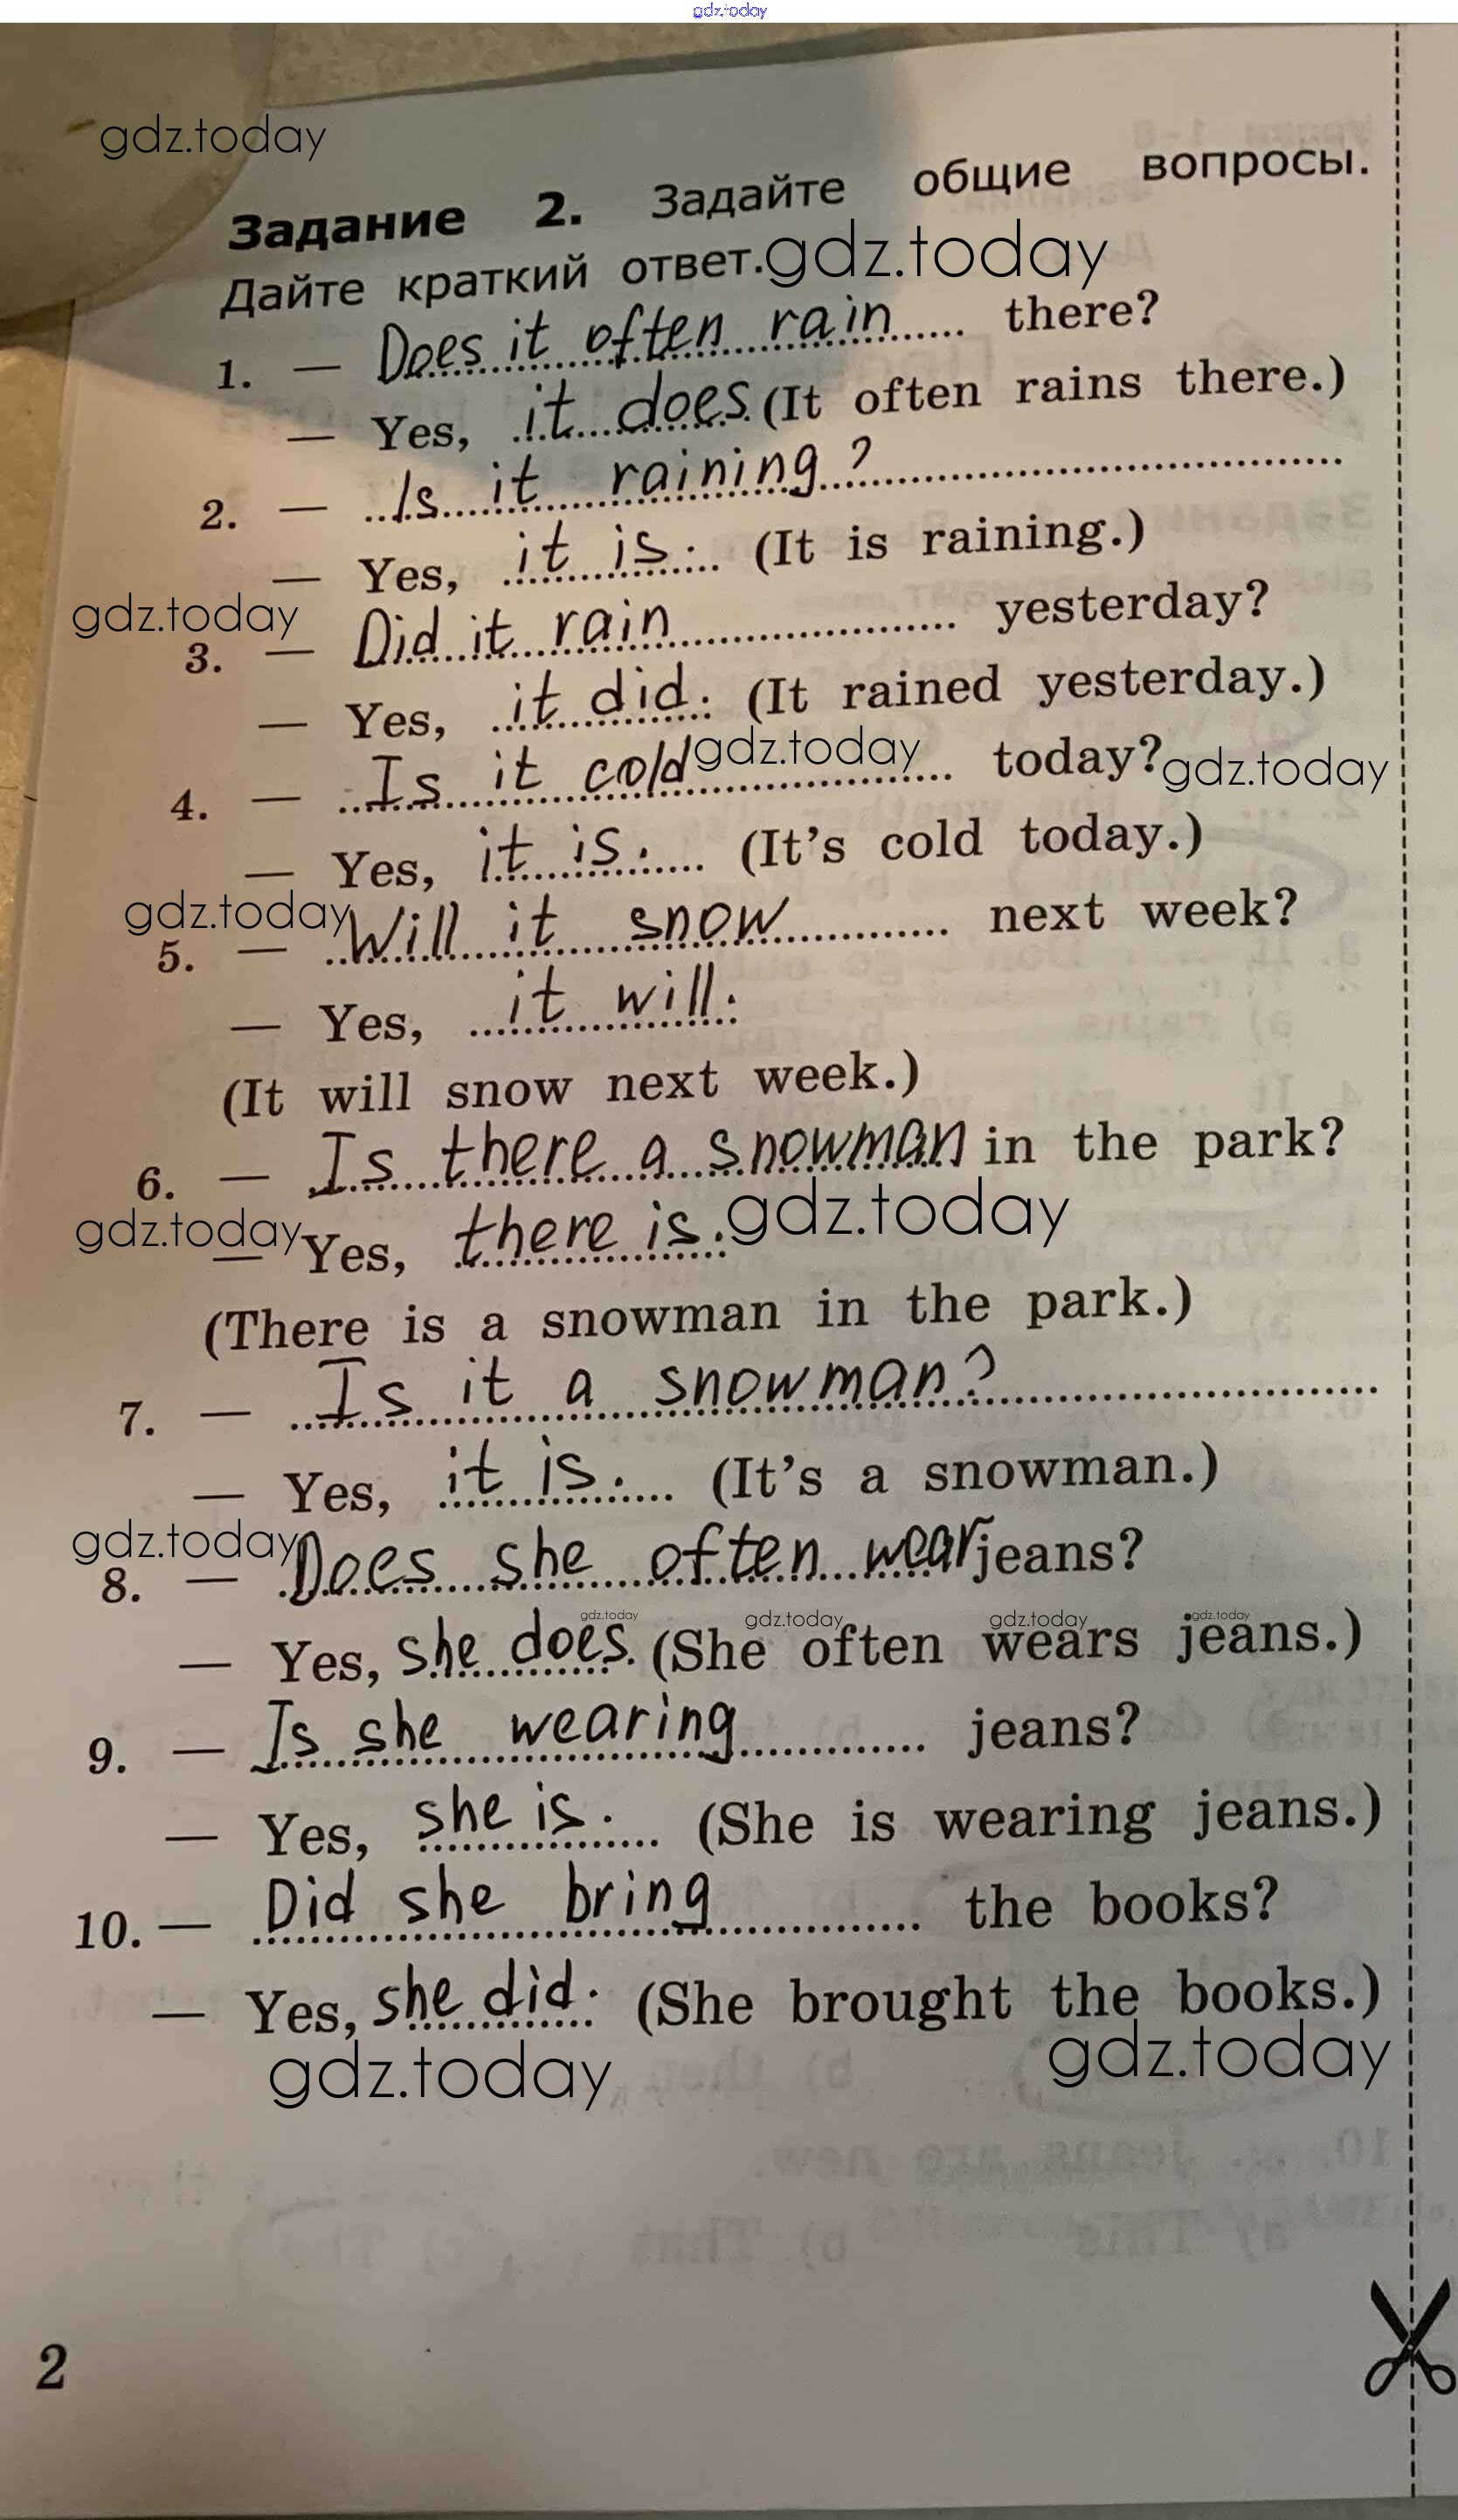 gdz.today
gdz.today
Задание 2. Задайте общие вопросы.
Дайте краткий ответ. gdz.today
1. — Does it often rain ...... there?
— Yes, it does. (It often rains there.)
2. — Is it raining?
— Yes, it is. (It is raining.)
gdz.today
3. — Did it rain yesterday?
— Yes, it did. (It rained yesterday.)
4. — Is it cold gdz.today today? gdz.today
— Yes, it is. (It's cold today.)
gdz.today
5. — Will it snow next week?
— Yes, it will.
(It will snow next week.)
6. — Is there a snowman in the park?
gdz.today — Yes, there is. gdz.today
(There is a snowman in the park.)
7. — Is it a snowman?
— Yes, it is. (It's a snowman.)
gdz.today
8. — Does she often wear jeans?
gdz.today gdz.today gdz.today gdz.today
— Yes, she does. (She often wears jeans.)
9. — Is she wearing jeans?
— Yes, she is. (She is wearing jeans.)
10. — Did she bring the books?
— Yes, she did. (She brought the books.)
gdz.today gdz.today
2